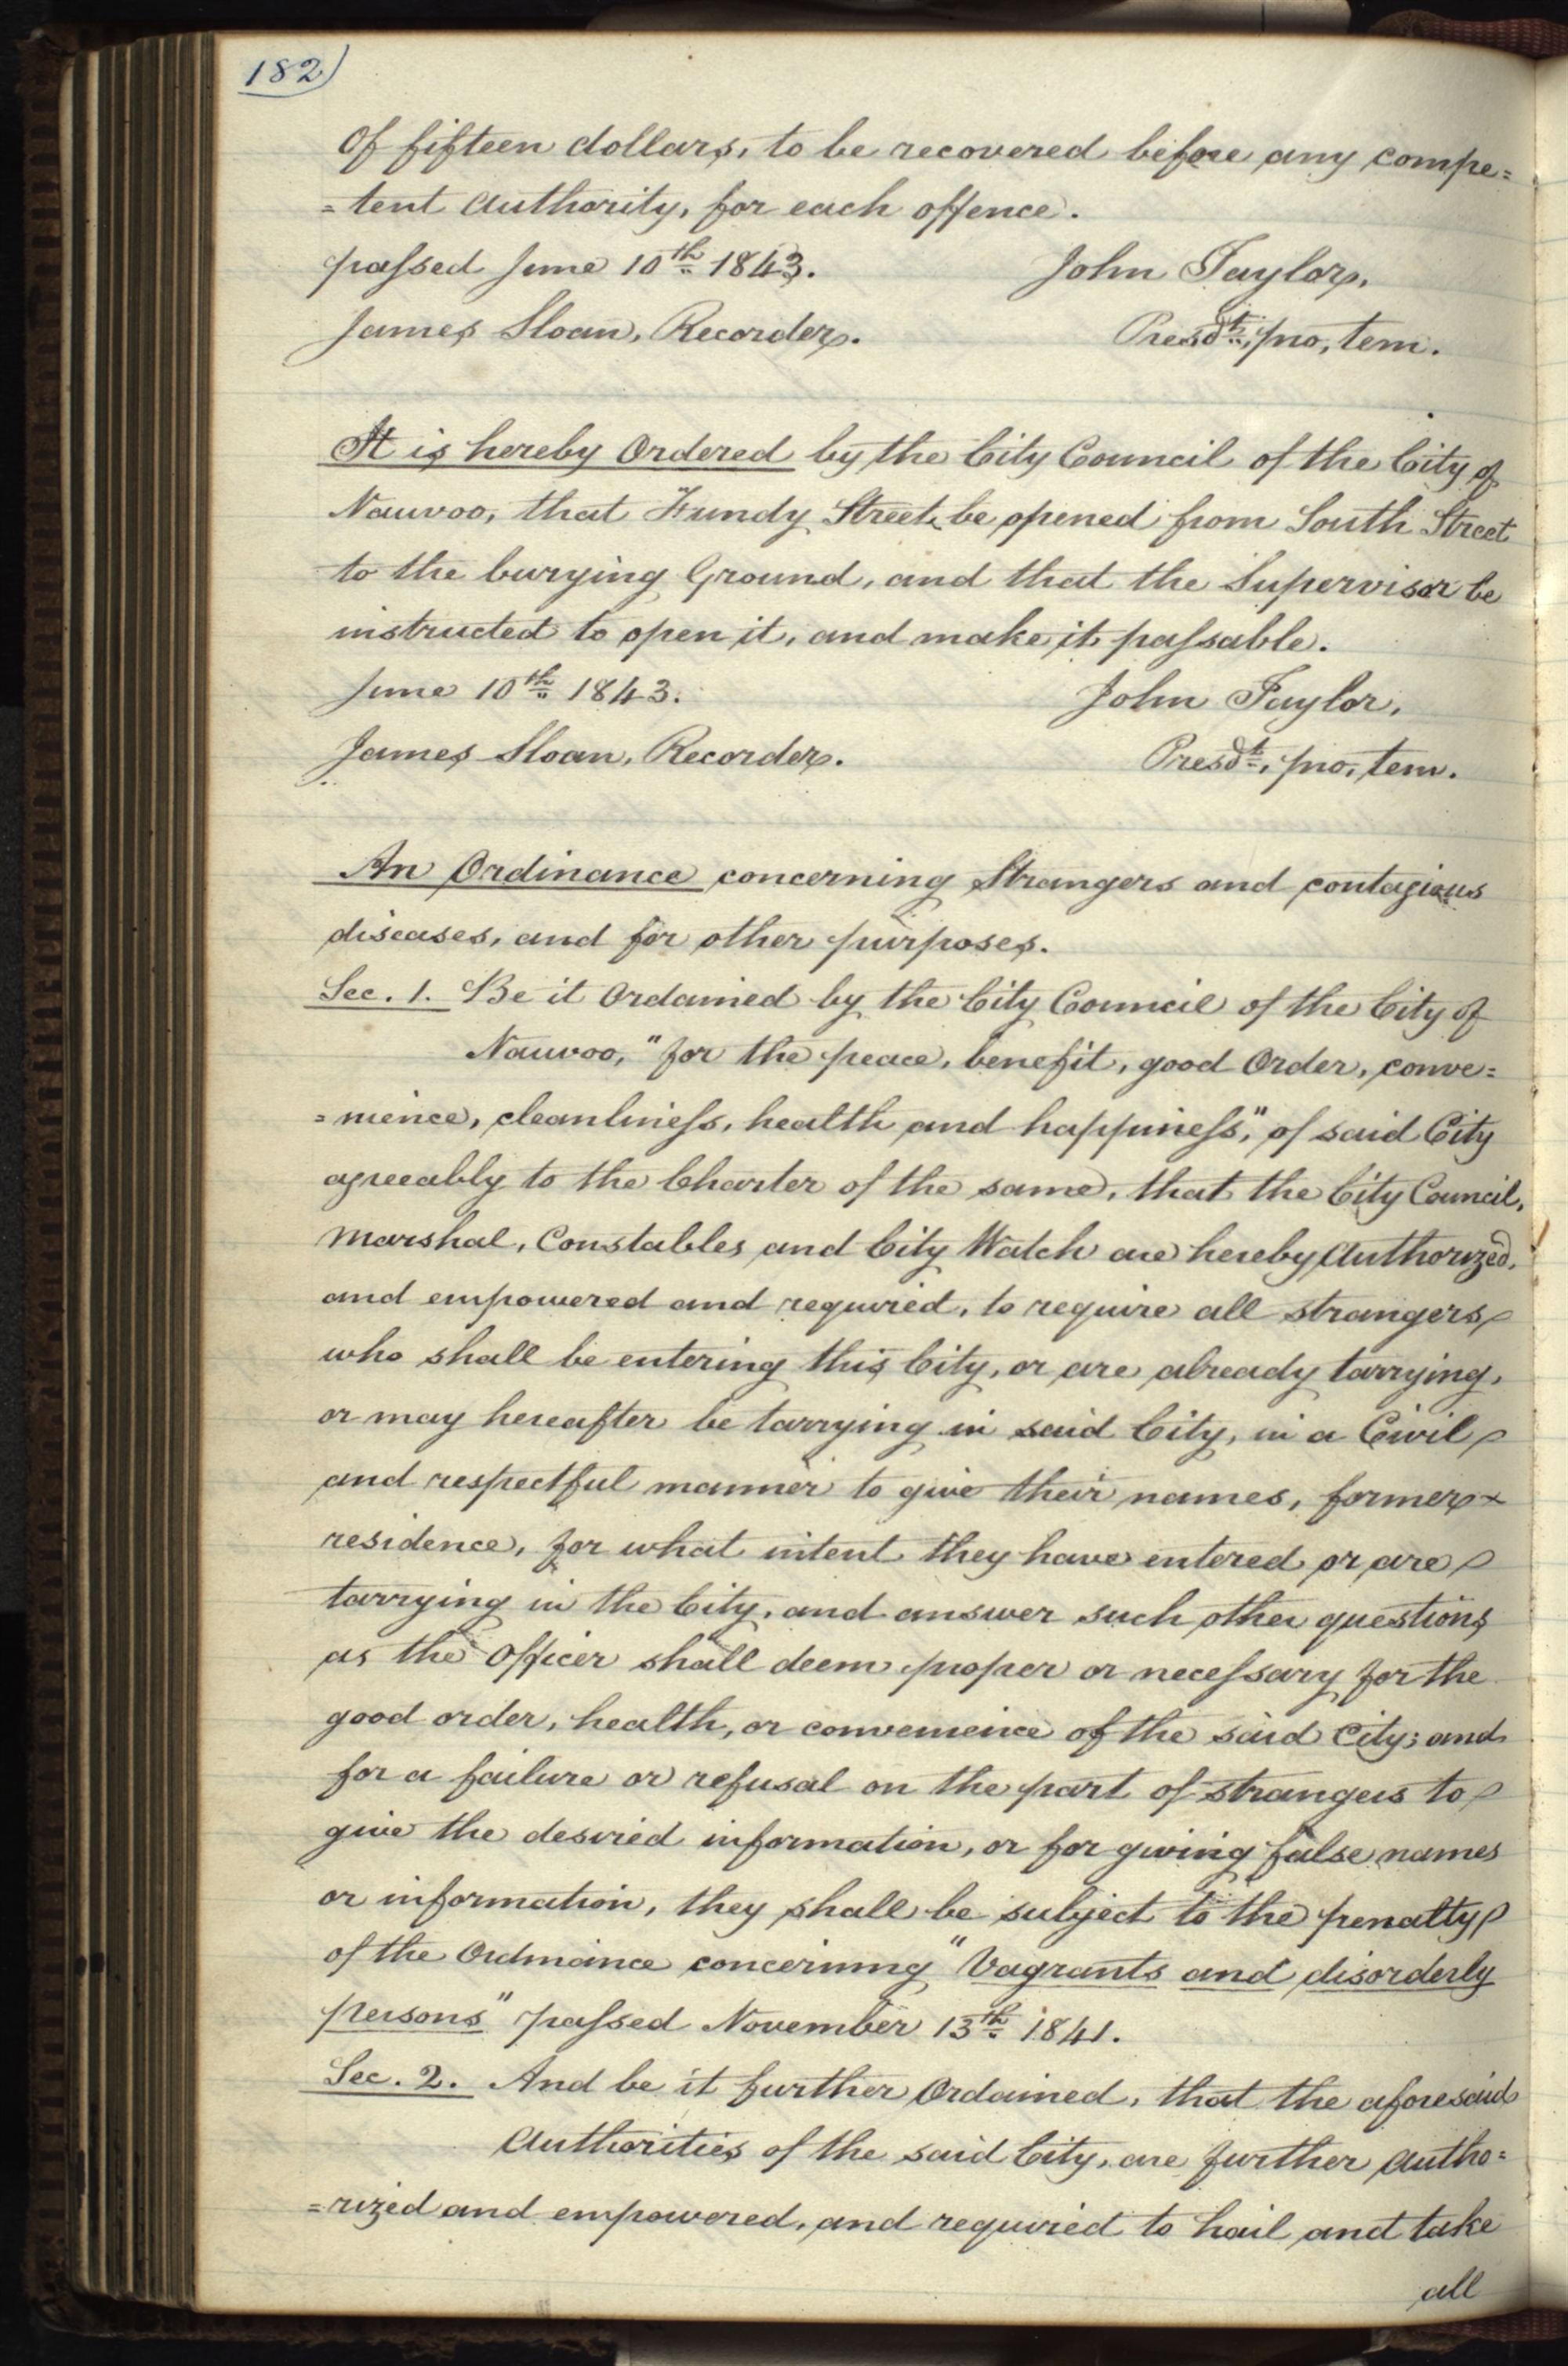 182)
of fifteen dollars, to be recovered before any compe=
=tent authority, for each offence.
passed June 10th 1843. John Taylor,
James Sloan, Recorder. Presdt, pro, tem.
It is hereby Ordered by the City Council of the City of
Nauvoo, that Fundy Street, be opened from South Street
to the burying Ground, and that the Supervisor be
instructed to open it, and make it passable.
June 10th 1843. John Taylor,
James Sloan, Recorder. Presdt, pro, tem.
An Ordinance concerning Strangers and contagious
diseases, and for other purposes.
Sec. 1. Be it Ordained by the City Council of the City of
Nauvoo, "for the peace, benefit, good Order, conve=
=nience, cleanliness, health and happiness," of said City
agreeably to the Charter of the same, that the City Council,
Marshal, Constables and City Watch are hereby authorized,
and empowered and required, to require all strangers
who shall be entering this City, or are already tarrying,
or may hereafter be tarrying in said City, in a Civil
and respectful manner to give their names, former
residence, for what intent they have entered or are
tarrying in the City, and answer such other questions
as the Officer shall deem proper or necessary for the
good order, health, or convenience of the said City; and
for a failure or refusal on the part of strangers to
give the desired information, or for giving false names
or information, they shall be subject to the penalty
of the Ordinance concerning "Vagrants and disorderly
persons" passed November 13th 1841.
Sec. 2. And be it further Ordained, that the aforesaid
authorities of the said City, are further autho=
=rized and empowered, and required to hail and take
all